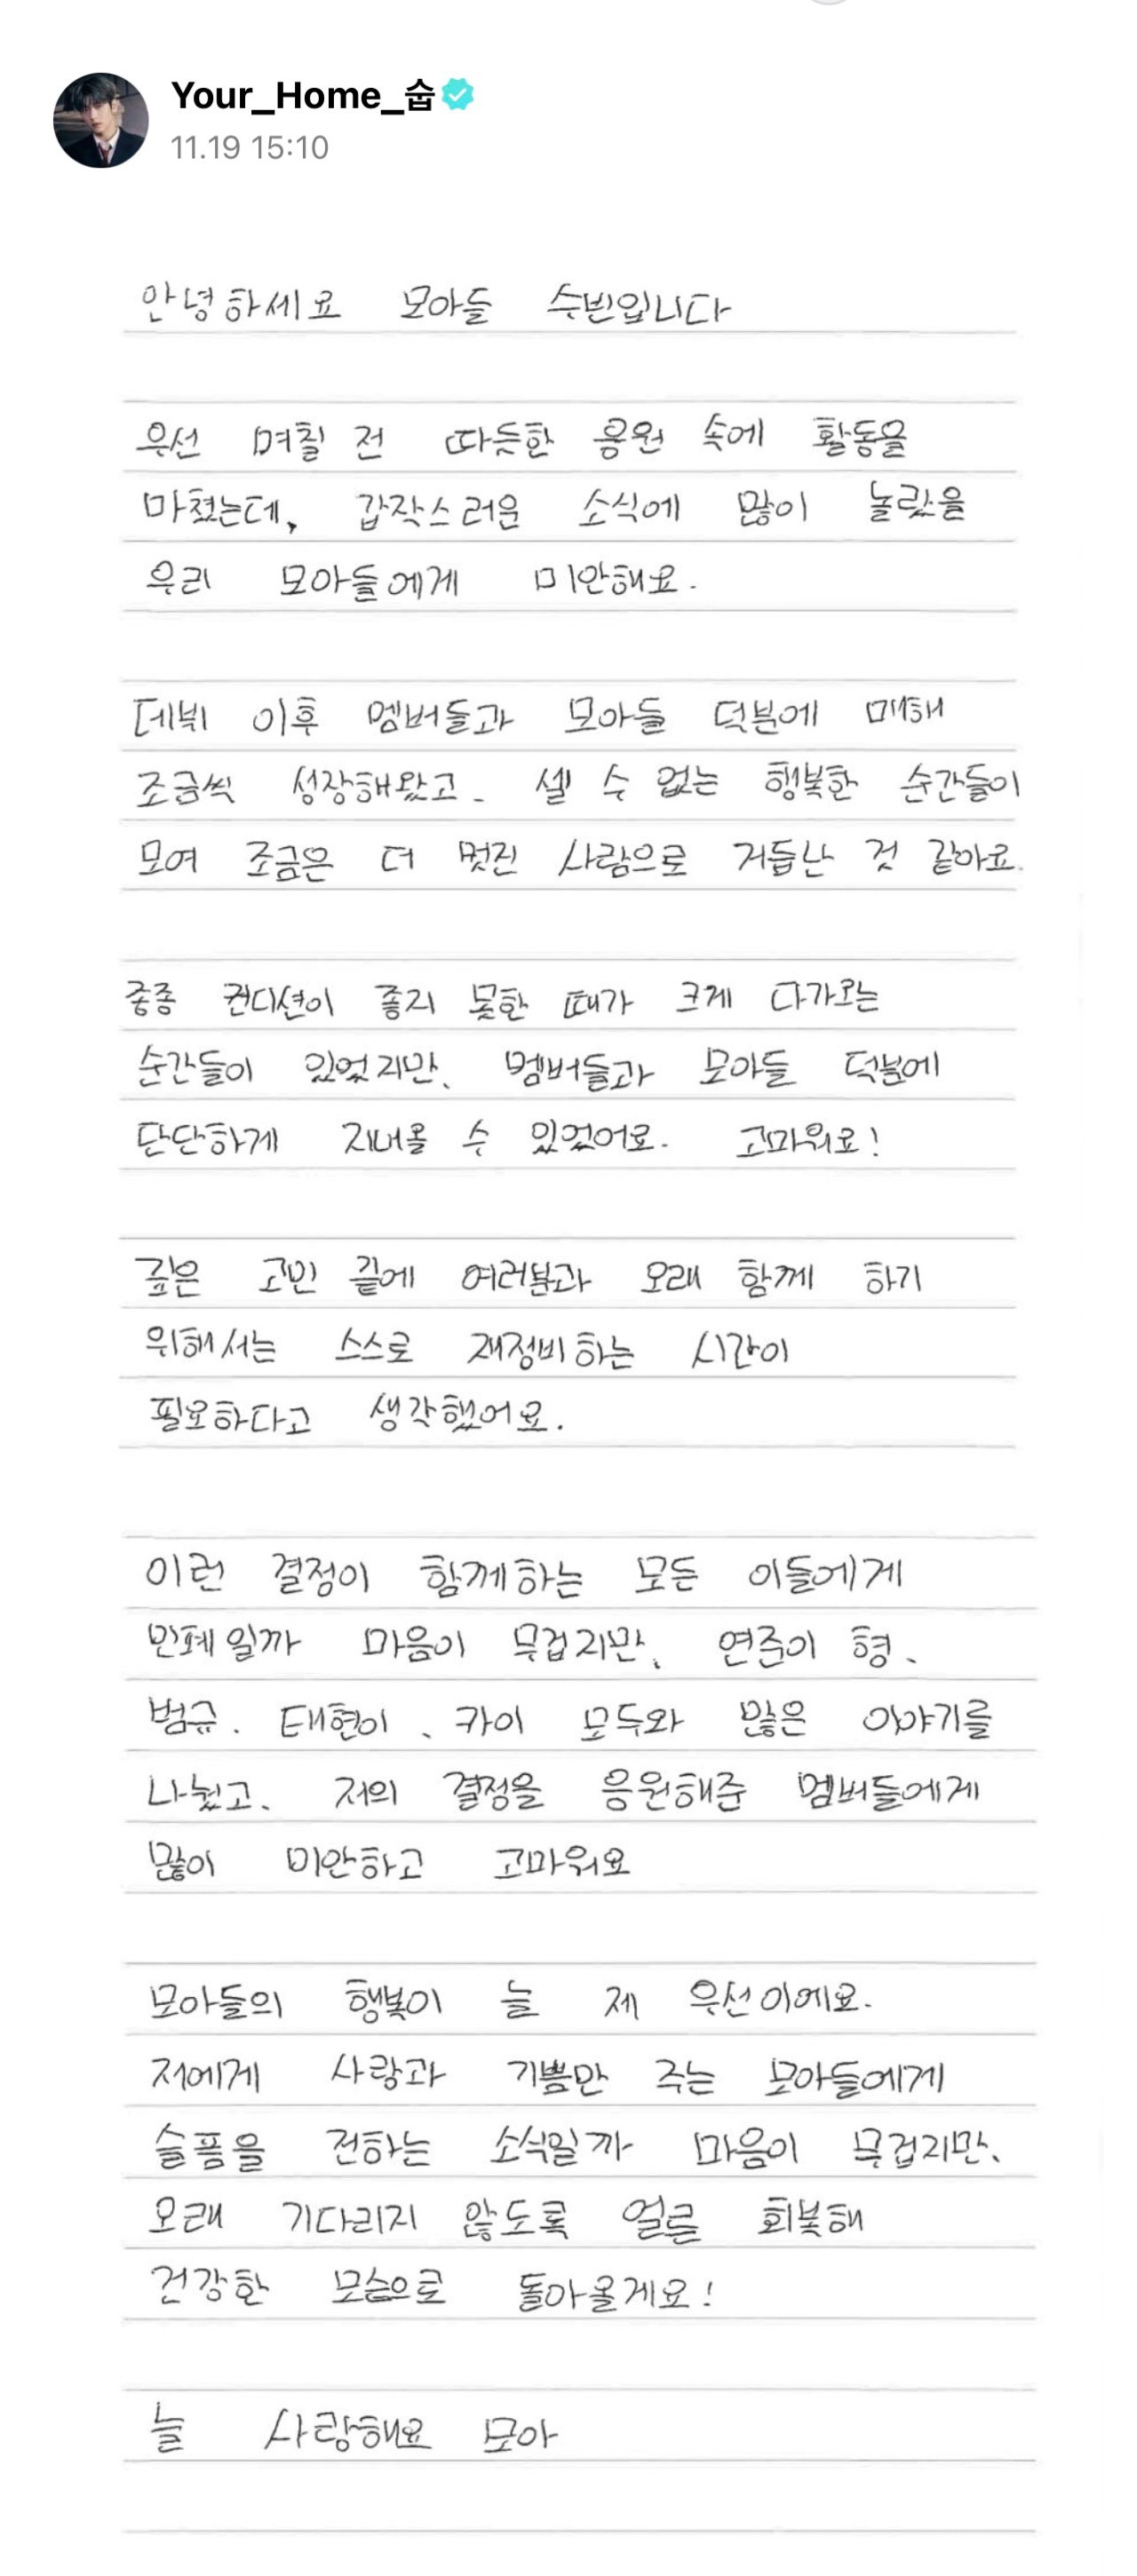 Your_Home_숩
11.19 15:10
안녕하세요 모아들 수빈입니다
우선 며칠 전 따듯한 응원 속에 활동을
마쳤는데, 갑작스러운 소식에 많이 놀랐을
우리 모아들에게 미안해요.
데뷔 이후 멤버들과 모아들 덕분에 매해
조금씩 성장해왔고, 셀 수 없는 행복한 순간들이
모여 조금은 더 멋진 사람으로 거듭난 것 같아요.
종종 컨디션이 좋지 못한 때가 크게 다가오는
순간들이 있었지만, 멤버들과 모아들 덕분에
단단하게 지내올 수 있었어요. 고마워요!
깊은 고민 끝에 여러분과 오래 함께 하기
위해서는 스스로 재정비하는 시간이
필요하다고 생각했어요.
이런 결정이 함께하는 모든 이들에게
민폐일까 마음이 무겁지만, 연준이 형,
범규, 태현이, 카이 모두와 많은 이야기를
나눴고, 저의 결정을 응원해준 멤버들에게
많이 미안하고 고마워요
모아들의 행복이 늘 제 우선이에요.
저에게 사랑과 기쁨만 주는 모아들에게
슬픔을 전하는 소식일까 마음이 무겁지만,
오래 기다리지 않도록 얼른 회복해
건강한 모습으로 돌아올게요!
늘 사랑해요 모아